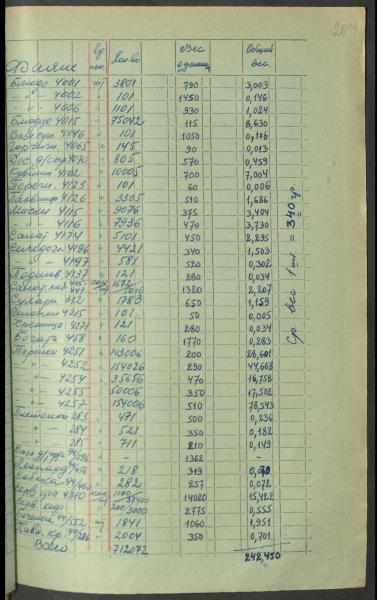 204
Фаянс Ед. изм. Кол-во Вес единиц Общий вес.
Блюдо 4001 шт 3801 790 3,003
-"- 4002 " 101 1450 0,146
-"- 4006 " 1101 930 1,024
Блюдце 4015 " 75042 115 8,630
Ваза суп. 4046 " 101 1050 0,106
4065 " 145 90 0,013
4070 " 805 570 0,459
Кувшин 4102 " 10005 700 7,004
4123 " 101 60 0,006
4126 " 3305 510 1,686
Миски 4115 " 9076 375 3,404
-"- 4116 " 7936 470 3,730
Салат 4174 " 5101 450 2,295
Селедочн. 4196 " 4421 340 1,503
-"- 4197 " 581 520 0,302
4137 " 121 280 0,034
1672 1320 2,207
Сухарн. 312 " 1783 650 1,159
Солонки 4215 " 101 50 0,005
Хренница 4221 " 121 280 0,034
458 " 160 1770 0,283
Тарелки 4251 " 143006 200 28,601
-"- 4252 " 154026 290 44,668
-"- 4254 " 35656 470 16,758
-"- 4255 " 50006 350 17,502
-"- 4257 " 154006 510 78,543
Пепельница 283 " 471 500 0,236
-"- 284 " 521 350 0,182
-"- 285 " 711 210 0,149
Ваза - 1362 -
218 319
282 257 0,072
4310 1100 14020 15,422
2775 0,555
44/152 шт 1841 1060 1,951
44/286 " 2004 350 0,701
Всего 712072 242,450
Ср. вес 1 шт. = 340 гр.